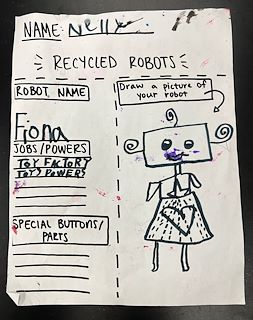 NAME: Nelly
RECYCLED ROBOTS
ROBOT NAME
Fiona
JOBS/POWERS
TOY FACTORY
TOYS POWERS
SPECIAL BUTTONS/
PARTS
Draw a picture of
your robot